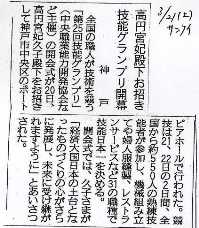 3/21(土)
サンケイ
高円宮妃殿下お招き
技能グランプリ開幕
神戸
全国の職人が技術を競う
「第25回技能グランプリ」
(中央職業能力開発協会な
ど主催)の開会式が20日、
高円宮妃久子殿下をお招き
して神戸市中央区のポート
ピアホールで行われた。競
技は21、22日の2日間、全
国から約500人の熟練技
能者が参加し、機械組み立
てや婦人服縫製、レストラ
ンサービスなど30の職種で
技能日本一を決める。
開会式では、久子さまが
「経済大国日本の土台とな
ったものづくりの心がさら
に発展し、未来に受け継が
れますように」とあいさつ